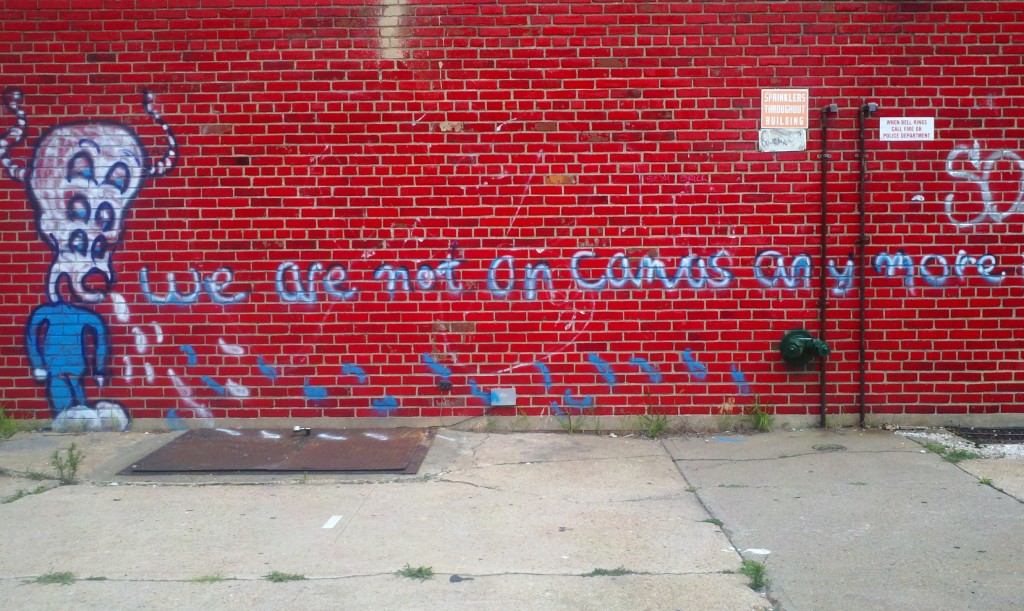 SPRINKLERS
THROUGHOUT
BUILDING
WHEN BELL RINGS
CALL FIRE OR
POLICE DEPARTMENT
SO
we are not on canvas any more